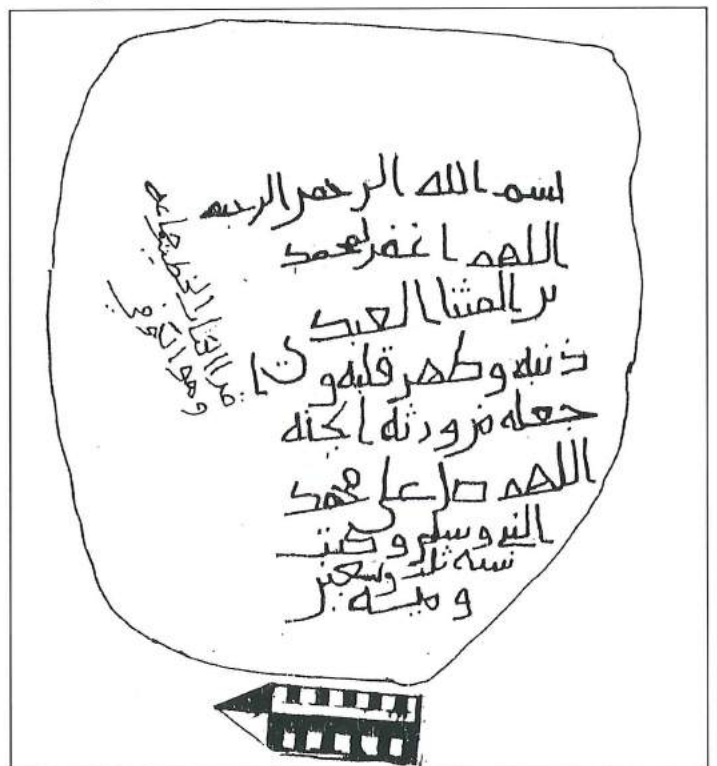 بسم الله الرحمن الرحيم
اللهم اغفر لمحمد
بن المثنا العبدي
ذنبه وطهر قلبه وا
جعله من ورثة الجنة
اللهم صل على محمد
النبي وسلم وكتب
سنة ثلث وسبعين
ومية
وهو